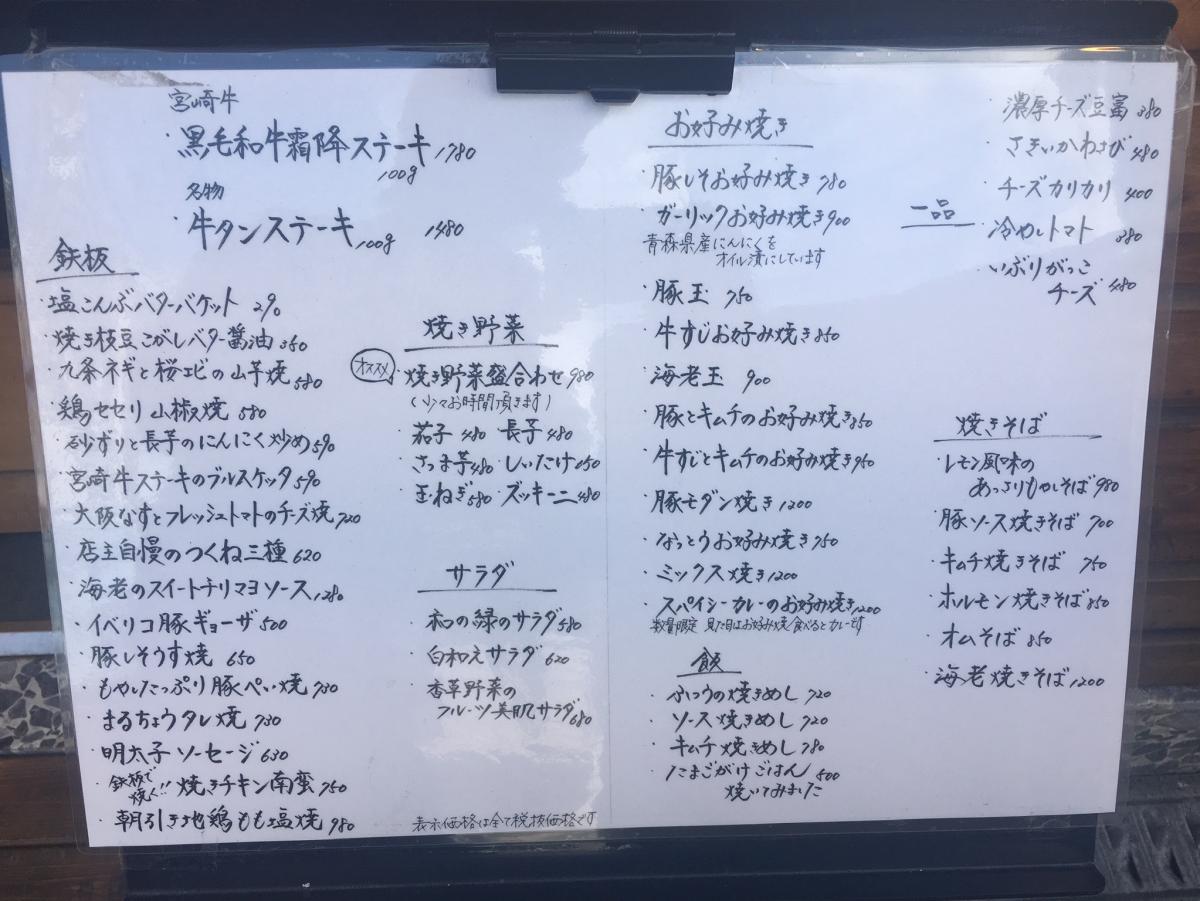 宮崎牛
・黒毛和牛霜降ステーキ 1780
100g
名物
・牛タンステーキ 100g 1480
鉄板
・塩こんぶバターバケット 290
・焼き枝豆こがしバター醤油 350
・九条ネギと桜エビの山芋焼 580
・鶏セセリ山椒焼 580
・砂ずりと長芋のにんにく炒め 590
・宮崎牛ステーキのブルスケッタ 590
・大阪なすとフレッシュトマトのチーズ焼 720
・店主自慢のつくね三種 620
・海老のスイートチリマヨソース 1280
・イベリコ豚ギョーザ 500
・豚しそうす焼 650
・もやしたっぷり豚ぺい焼 730
・まるちょうタレ焼 730
・明太子ソーセージ 630
・鉄板で焼く!! 焼きチキン南蛮 750
・朝引き地鶏もも塩焼 980
焼き野菜
オススメ ・焼き野菜盛合わせ 980
(少々お時間頂きます)
・茄子 480 ・長芋 480
・さつま芋 480 ・しいたけ 650
・玉ねぎ 580 ・ズッキーニ 480
サラダ
・和の緑のサラダ 580
・白和えサラダ 620
・香草野菜の
フルーツ美肌サラダ 680
表示価格は全て税抜価格です
お好み焼き
・豚しそお好み焼き 780
・ガーリックお好み焼き 900
青森県産にんにくを
オイル漬にしています
・豚玉 750
・牛すじお好み焼き 850
・海老玉 900
・豚とキムチのお好み焼き 850
・牛すじとキムチのお好み焼き 950
・豚モダン焼き 1200
・なっとうお好み焼き 750
・ミックス焼き 1200
・スパイシーカレーのお好み焼き 1200
数量限定 見た目はお好み焼 食べるとカレーです
飯
・ふつうの焼きめし 720
・ソース焼きめし 720
・キムチ焼きめし 780
・たまごがけごはん 500
焼いてみました
一品
・濃厚チーズ豆冨 380
・さきいかわさび 480
・チーズカリカリ 400
・冷やしトマト 380
・いぶりがっこ
チーズ 480
焼きそば
・レモン風味の
あっさりもやしそば 980
・豚ソース焼きそば 700
・キムチ焼きそば 750
・ホルモン焼きそば 850
・オムそば 850
・海老焼きそば 1200